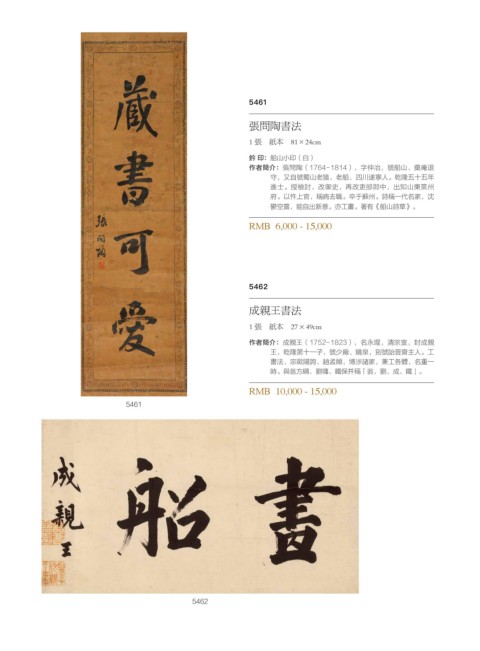 藏書可愛
張問陶
5461
5461
張問陶書法
1 張 紙本 81×24cm
鈐 印：船山小印（白）
作者簡介：張問陶（1764-1814），字仲冶，號船山、藥庵退
守，又自號蜀山老猿、老船，四川遂寧人。乾隆五十五年
進士，授檢討，改御史，再改吏部郎中，出知山東萊州
府。以忤上官，稱病去職。卒于蘇州。詩稱一代名家，沈
鬱空靈，能自出新意。亦工畫。著有《船山詩草》。
RMB 6,000 - 15,000
5462
成親王書法
1 張 紙本 27×49cm
作者簡介：成親王（1752-1823），名永瑆，清宗室，封成親
王，乾隆第十一子，號少廠、鏡泉，別號詒晉齋主人。工
書法，宗歐陽詢、趙孟頫，博涉諸家，兼工各體，名重一
時。與翁方綱、劉墉、鐵保并稱「翁、劉、成、鐵」。
RMB 10,000 - 15,000
畫船
成親王
5462